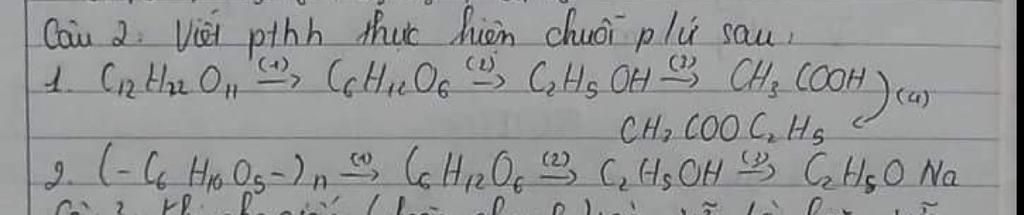 Câu 2: Viết pthh thực hiện chuỗi p/ứ sau:
1. C12H22O11 (1)→ C6H12O6 (2)→ C2H5OH (3)→ CH3COOH (4)
CH3COOC2H5
2. (-C6H10O5-)n (1)→ C6H12O6 (2)→ C2H5OH (3)→ C2H5ONa